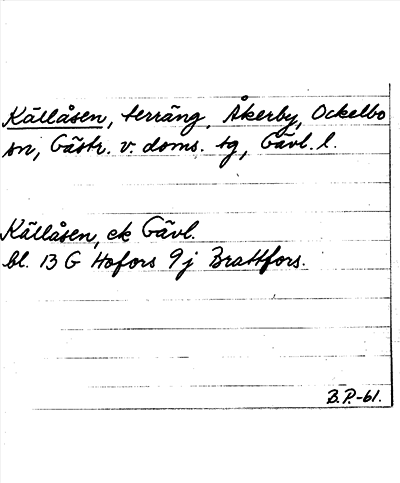 Källåsen, terräng, Åkerby, Ockelbo
sn, Gästr. v. doms. tg, Gävl. l.
Källåsen, ek Gävl.
bl. 13 G Hofors 9 j Brattfors.
B.P.-61.